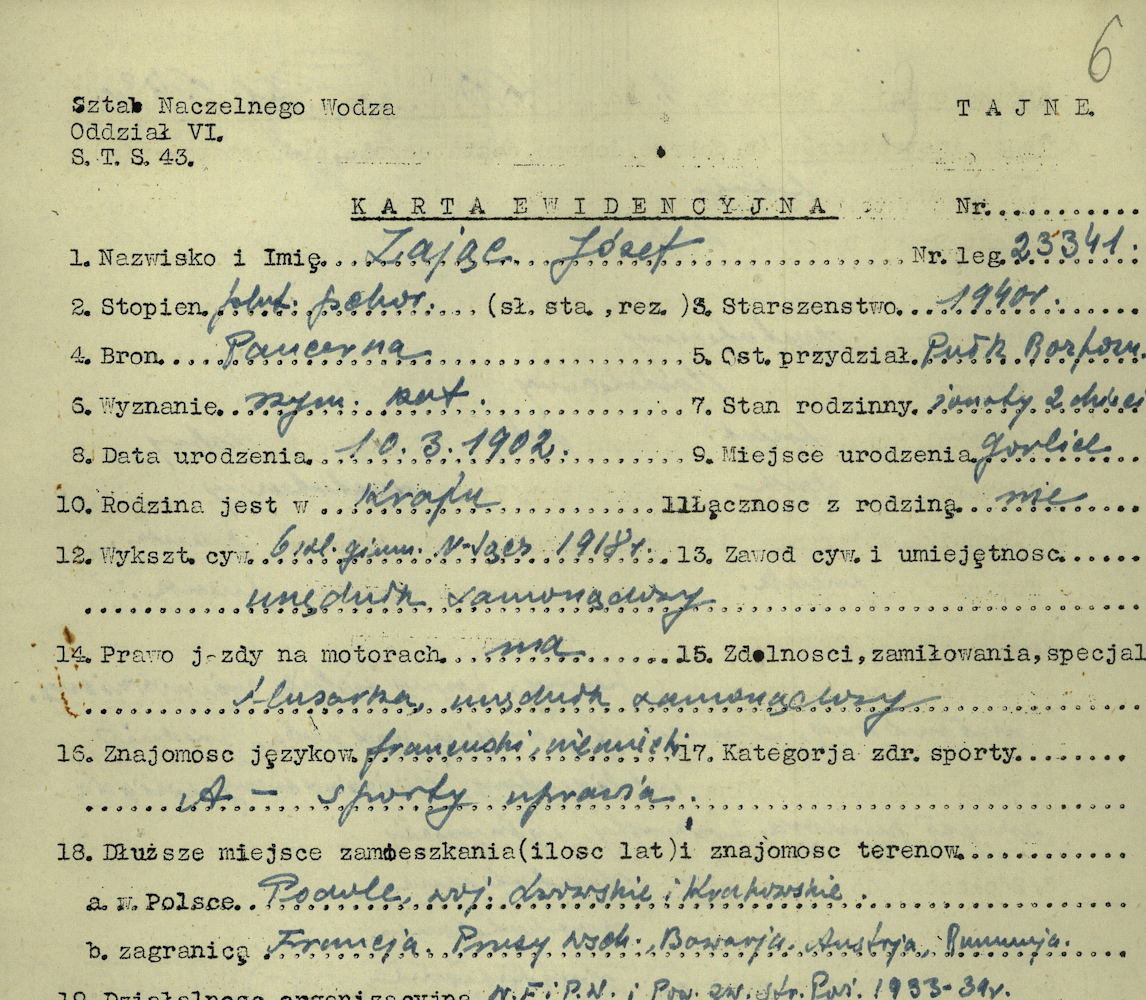 6
Sztab Naczelnego Wodza T A J N E.
Oddział VI.
S. T. S. 43.
K A R T A E W I D E N C Y J N A Nr...........
1. Nazwisko i Imię. Zając Józef Nr. leg. 23341.
2. Stopien plut. pchor. (sł. sta , rez. )3. Starszenstwo. 1940r.
4. Bron. Pancerna 5. Ost. przydział. Pułk
6. Wyznanie. rzym. kat. 7. Stan rodzinny. żonaty 2 dzieci
8. Data urodzenia. 10.3.1902. 9. Miejsce urodzenia Gorlice
10. Rodzina jest w Kraju 11Łącznosc z rodziną. nie
12. Wykszt. cyw. 6 kl. gimn. N-Sącz 1918r. 13. Zawod cyw. i umiejętnosc.
urzędnik samorządowy
14. Prawo j-zdy na motorach. ma 15. Zdolnosci, zamiłowania, specjal
ślusarka, urzędnik samorządowy
16. Znajomosc językow. francuski, niemiecki 17. Kategorja zdr. sporty.
A - sporty uprawia.
18. Dłuższe miejsce zamieszkania(ilosc lat)i znajomosc terenow.
a. w. Polsce. Podole, woj. Lwowskie i Krakowskie.
b. zagranicą Francja. Prusy wsch. Bawarja. Austrja, Rumunja.
19. Działalnosc organizacyjna 1933-34r.